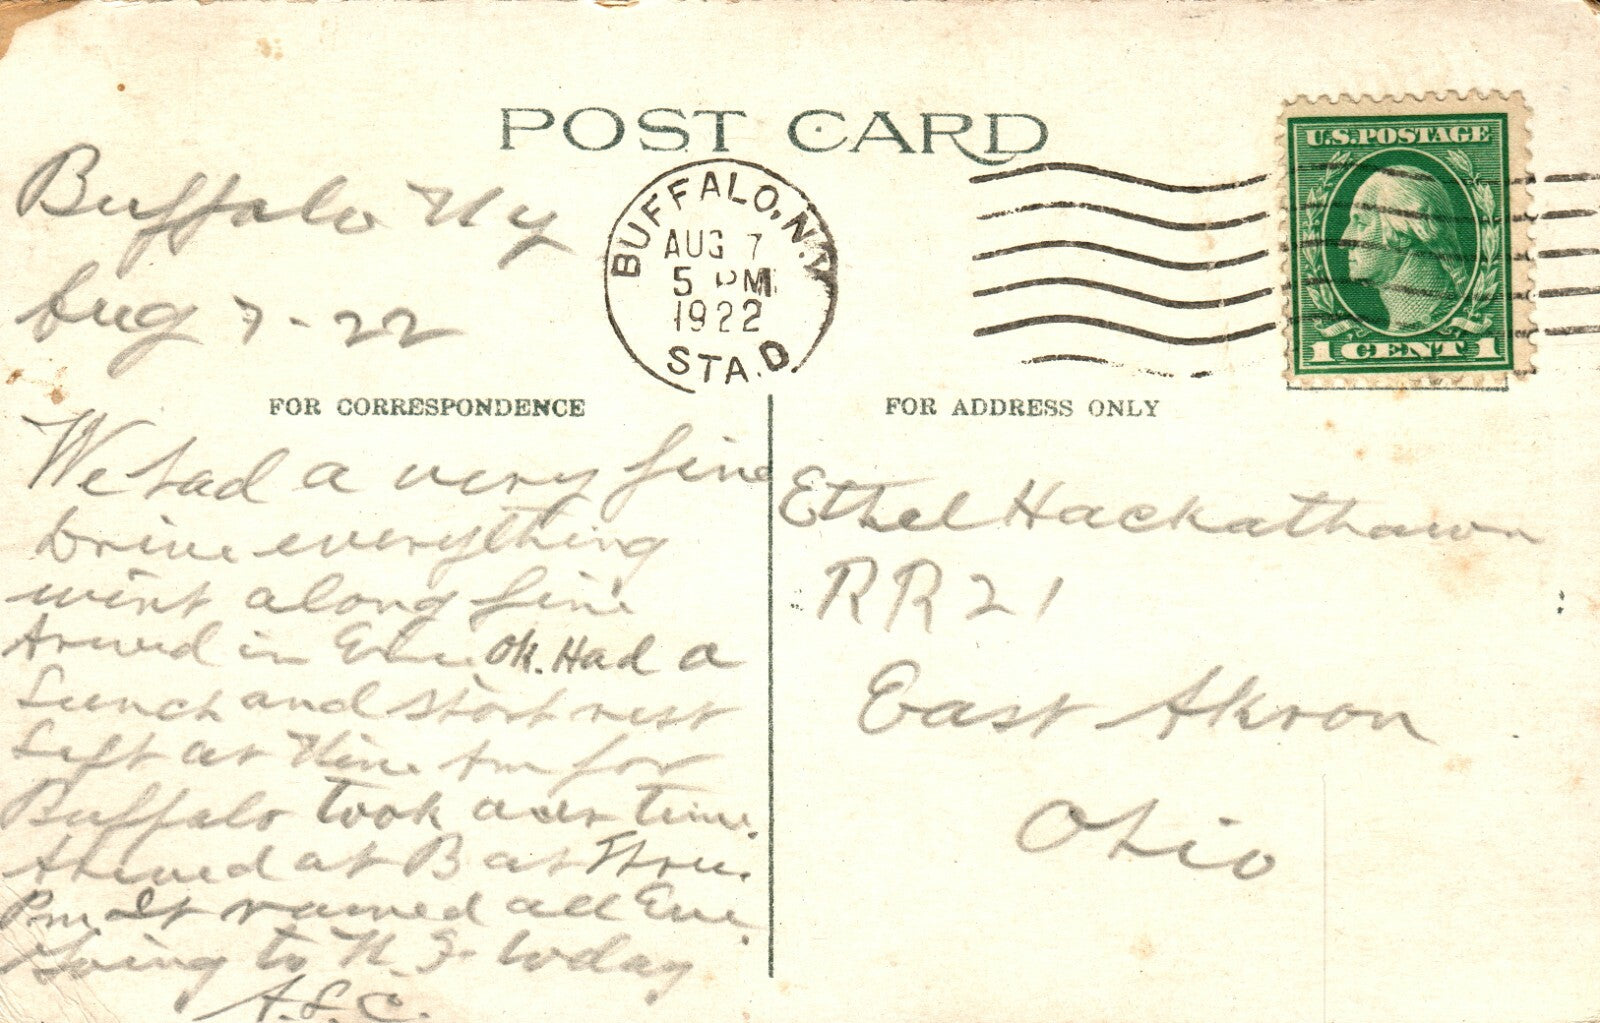 POST CARD
U.S. POSTAGE
1 CENT 1
BUFFALO, N.Y.
AUG 7
5 PM
1922
STA. D
Buffalo N y
Aug 7-22
FOR CORRESPONDENCE
We had a very fine
drive everything
wint along fine
Arived in Erie Ok. Had a
Lunch and short rest
Left at Nine Am for
Buffalo took our time.
Arived at B at Three.
P.m. It rained all Eve.
Going to N. F. today
A.L.C.
FOR ADDRESS ONLY
Ethel Hackathawn
RR 21
East Akron
Ohio